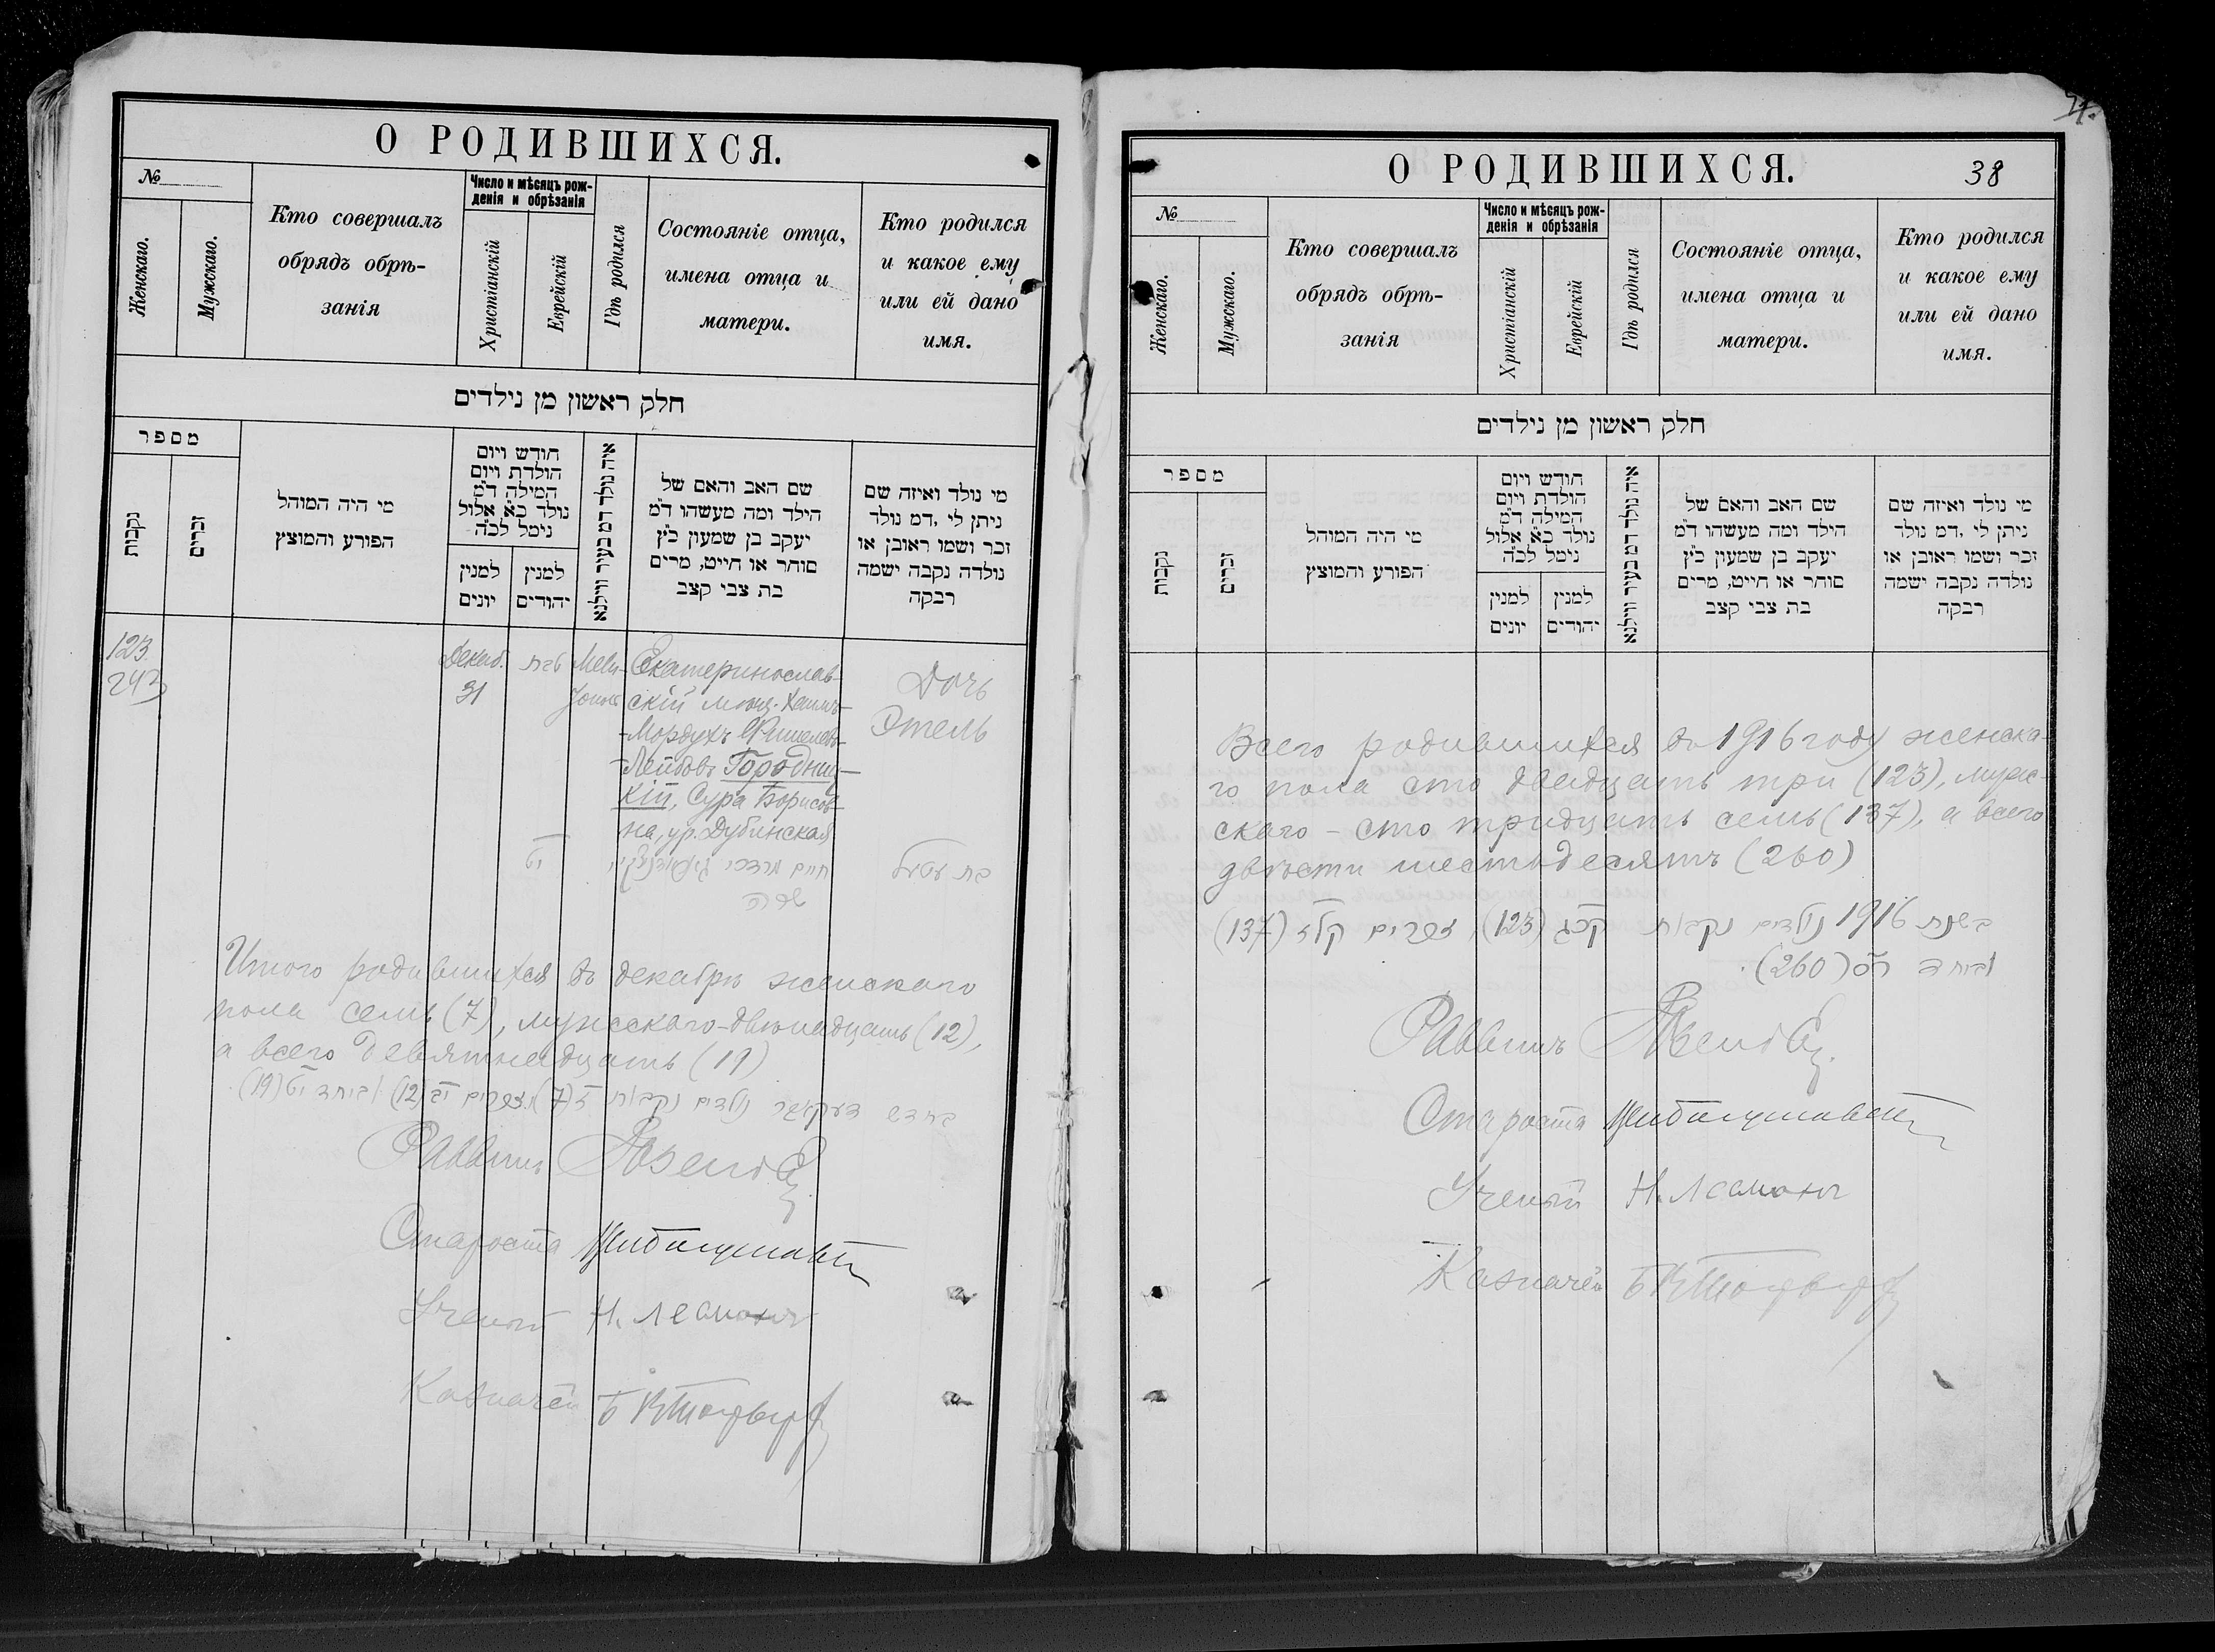 О РОДИВШИХСЯ.
№
Женскаго.
Мужскаго.
Кто совершалъ
обрядъ обрѣ-
занія
Число и мѣсяцъ рож-
денія и обрѣзанія
Христіанскій
Еврейскій
Гдѣ родился
Состояніе отца,
имена отца и
матери.
Кто родился
и какое ему
или ей дано
имя.
חלק ראשון מן נילדים
מספר
נקבות
זכרים
מי היה המוהל
הפורע והמוצץ
חודש ויום
הולדת ויום
המילה ד״מ
נולד כ״א אלול
נימל לכ״ה
למנין
יונים
למנין
יהודים
איה נולד דמ בעיר ווילנא
שם האב והאם של
הילד ומה מעשהו ד״מ
יעקב בן שמעון כ״ץ
סוחר או חייט, מרים
בת צבי קצב
מי נולד ואיזה שם
ניתן לי ,דמ נולד
זכר ושמו ראובן או
נולדה נקבה ישמה
רבקה
123
Декаб.
31
טבת
יט
Екатеринослав-
скій мѣщ. Хаимъ-
Мордухъ
-Лейбовъ Городниц-
кій, Сура Борисов-
на, ур. Дубинская
חיים מרדכי
שרה
Дочь
Этель
בת עטעל
Итого родившихся въ декабрѣ женскаго
пола семь (7), мужскаго-двѣнадцать (12),
а всего девятнадцать (19)
בחדש דעקאבר נולדים נקבות ז (7), זכרים יב (12) וביחד יט (19).
Раввинъ
Староста
Ученый Н. Лесманъ
Казначей
О РОДИВШИХСЯ.
38
№
Женскаго.
Мужскаго.
Кто совершалъ
обрядъ обрѣ-
занія
Число и мѣсяцъ рож-
денія и обрѣзанія
Христіанскій
Еврейскій
Гдѣ родился
Состояніе отца,
имена отца и
матери.
Кто родился
и какое ему
или ей дано
имя.
חלק ראשון מן נילדים
מספר
נקבות
זכרים
מי היה המוהל
הפורע והמוצץ
חודש ויום
הולדת ויום
המילה ד״מ
נולד כ״א אלול
נימל לכ״ה
למנין
יונים
למנין
יהודים
איה נולד דמ בעיר ווילנא
שם האב והאם של
הילד ומה מעשהו ד״מ
יעקב בן שמעון כ״ץ
סוחר או חייט, מרים
בת צבי קצב
מי נולד ואיזה שם
ניתן לי ,דמ נולד
זכר ושמו ראובן או
נולדה נקבה ישמה
רבקה
Всего родившихся въ 1916 году женска-
го пола сто двадцать три (123), муж-
скаго - сто тридцать семь (137), а всего
двѣсти шестьдесятъ (260)
בשנת 1916 נולדים נקבות קכג (123), זכרים קלז (137)
וביחד רס (260).
Раввинъ
Староста
Ученый Н. Лесманъ
Казначей